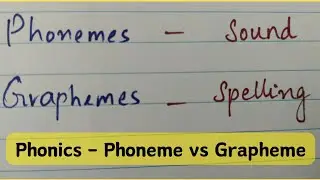 Phonemes - Sound
Graphemes - Spelling
Phonics - Phoneme vs Grapheme